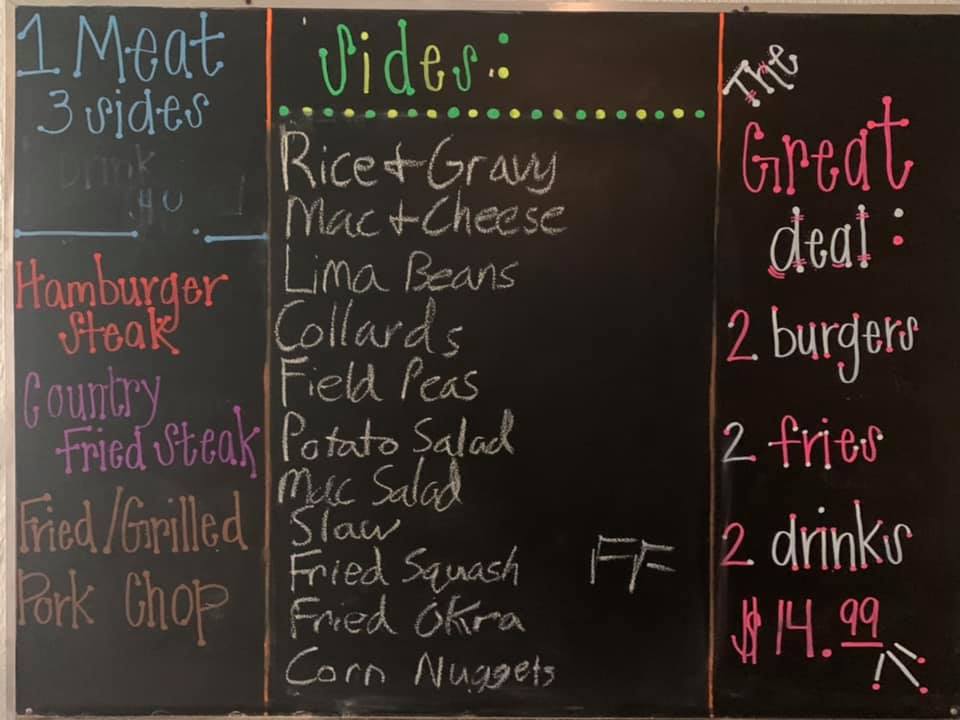 1 Meat
3 sides
Drink
Hamburger
Steak
Country
Fried Steak
Fried/Grilled
Pork Chop
Sides:
Rice + Gravy
Mac + Cheese
Lima Beans
Collards
Field Peas
Potato Salad
Mac Salad
Slaw
Fried Squash
FF
Fried Okra
Corn Nuggets
The
Great
deal:
2 burgers
2 fries
2 drinks
$14.99